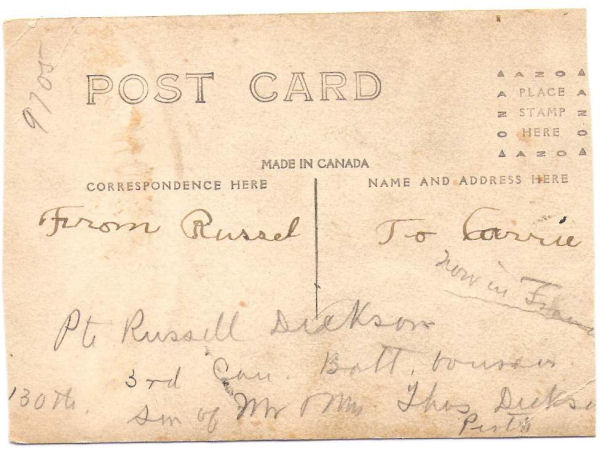 9705
POST CARD
AZO
A PLACE A
N STAMP N
O HERE O
AZO
MADE IN CANADA
CORRESPONDENCE HERE
NAME AND ADDRESS HERE
From Russel
To Carrie
now in
Pte Russell Dickson
3rd Can. Batt.
130th.
son of Mr & Mrs Thos Dickso
Perth